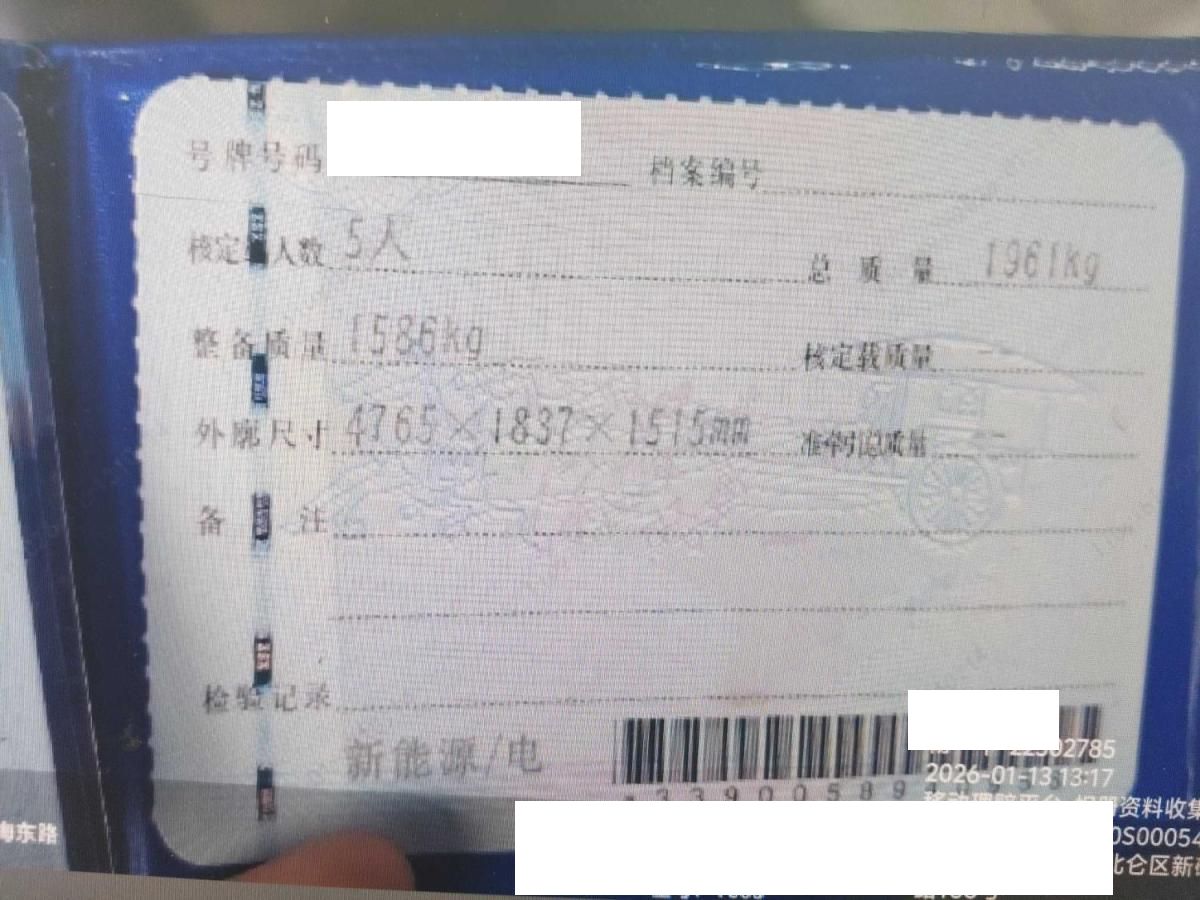 号牌号码 档案编号
核定 人数 5人 总质量 1961kg
整备质量 1586kg 核定载质量
外廓尺寸 4765×1837×1515mm 准牵引总质量 --
备注
检验记录
新能源/电
2785
2026-01-13 13:17
资料收集
0S00054
海东路
北仑区新